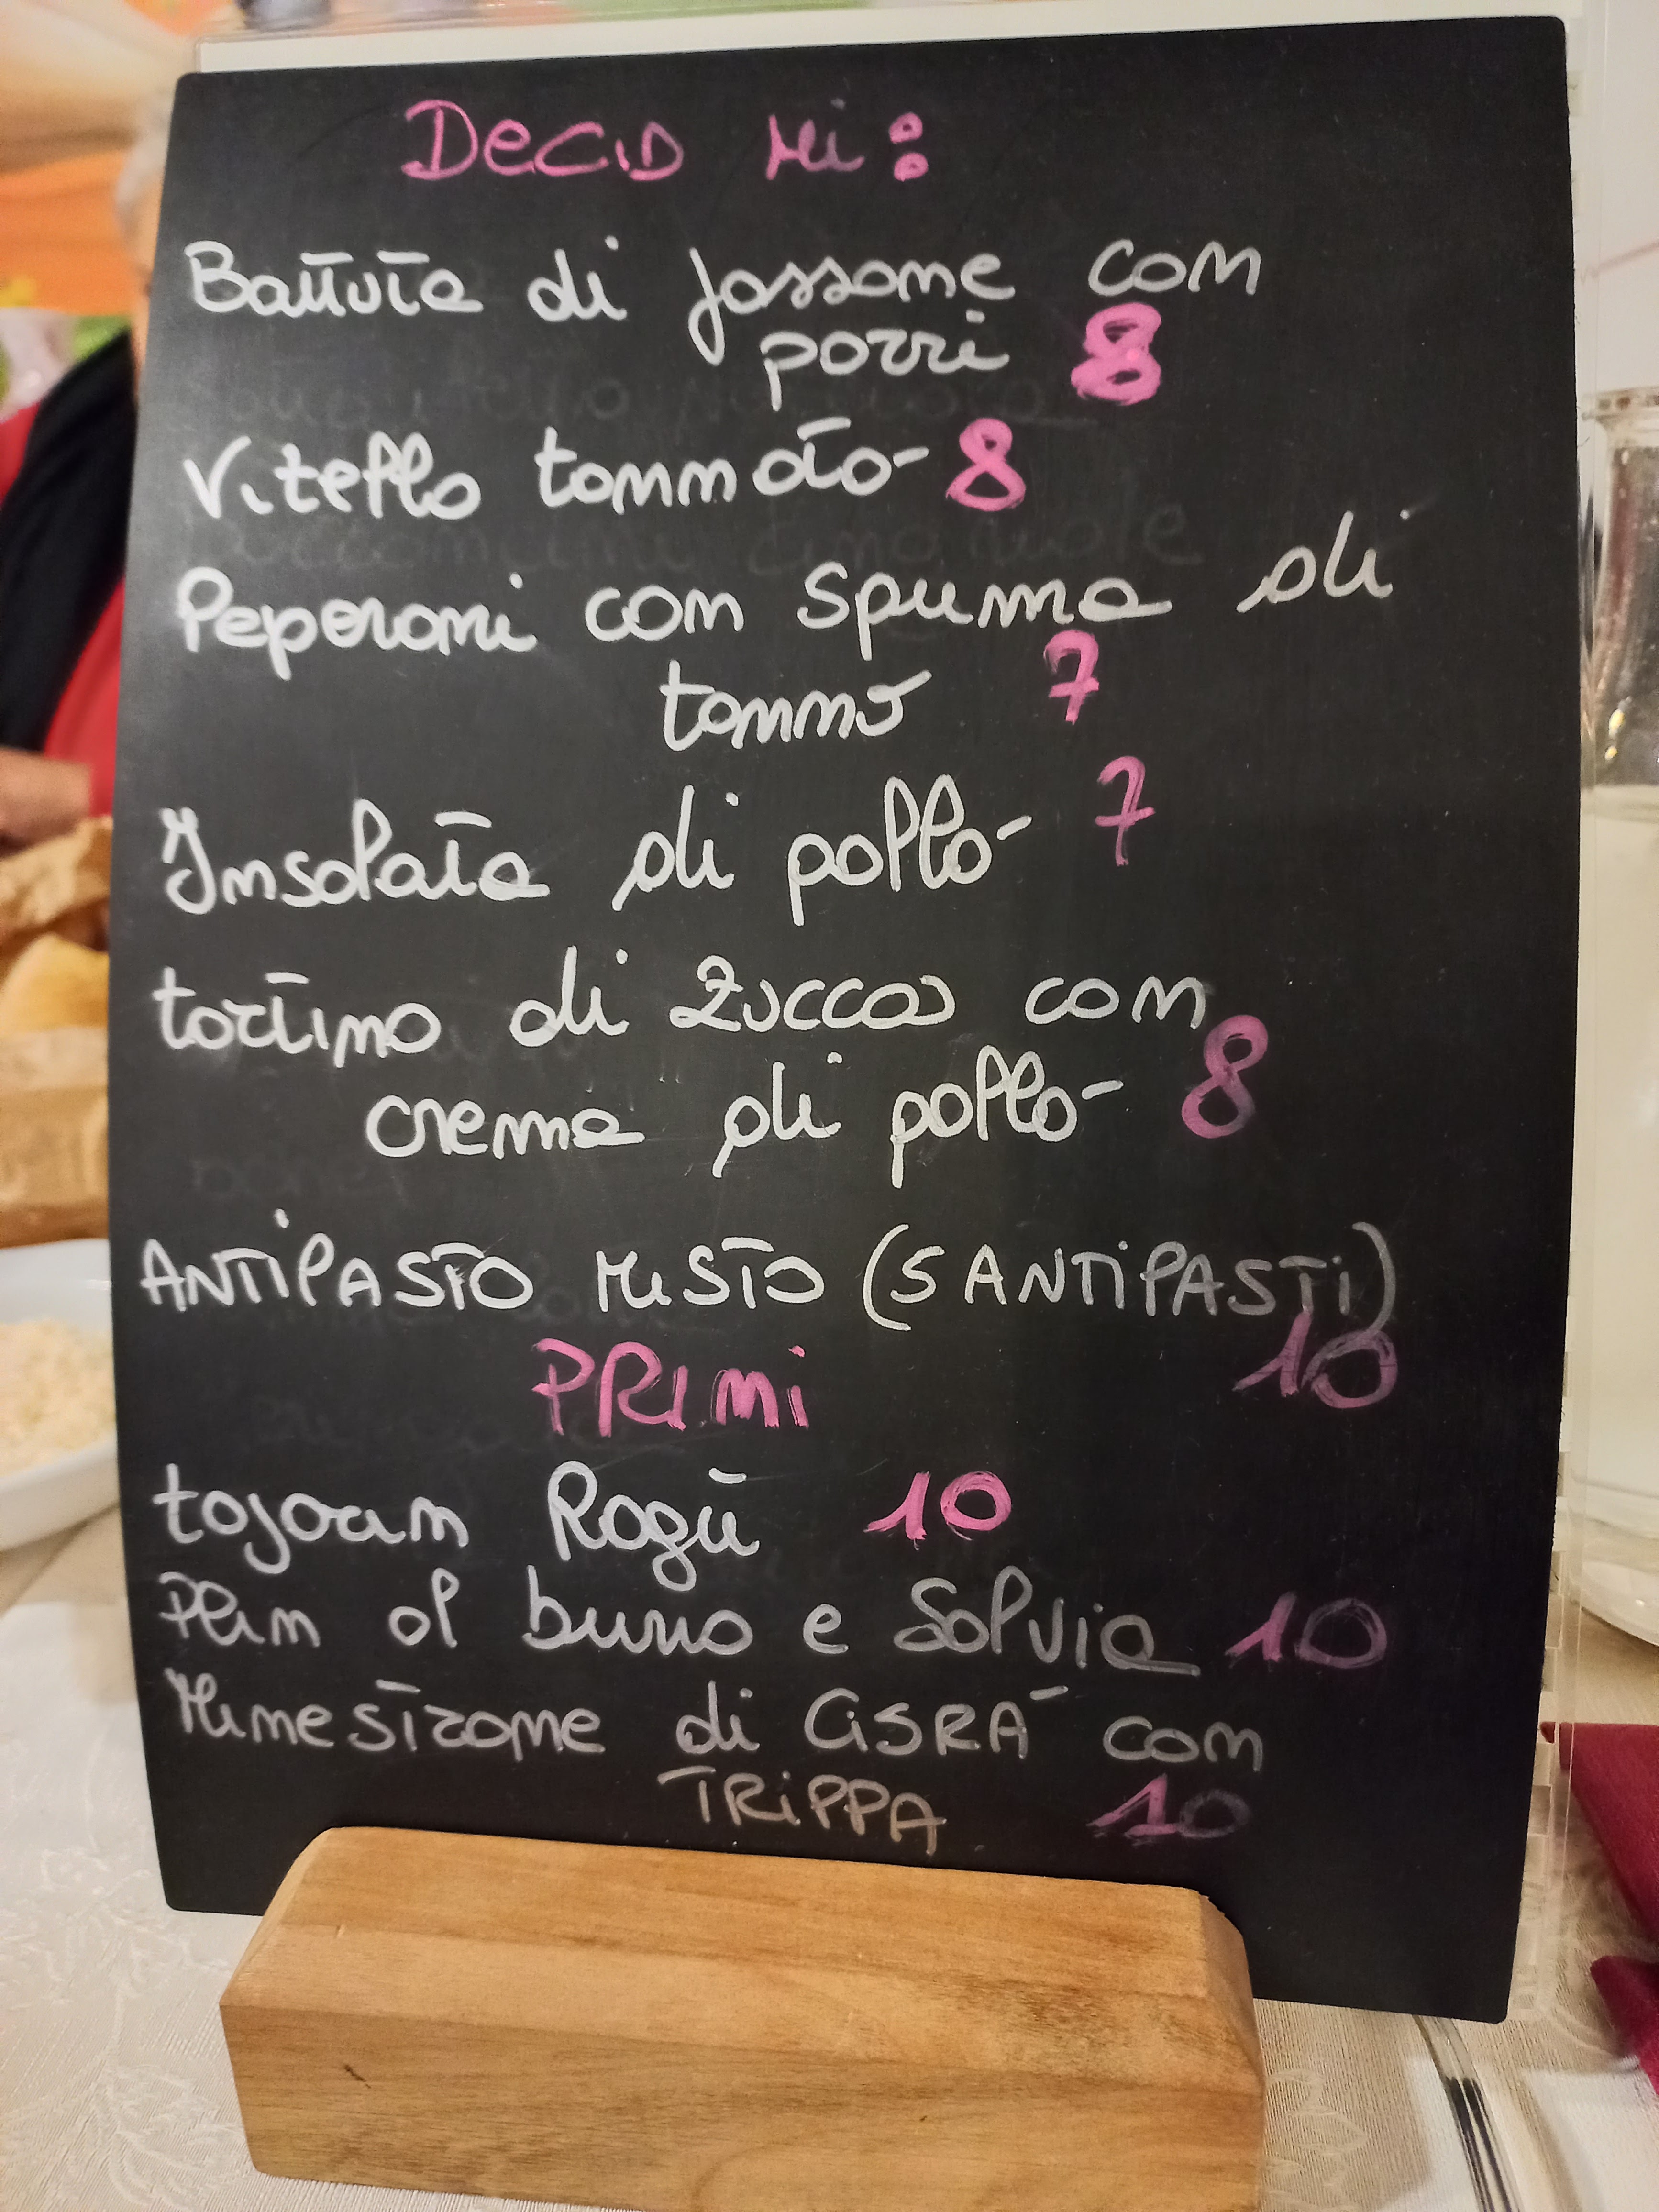 DeCiD Mi:
Battuta di fassone con
porri 8
Vitello tonnato - 8
Peperoni con spuma di
tonno 7
Insalata di pollo - 7
tortino di zucca con
crema di pollo - 8
ANTiPASTO MiSTO (5 ANTiPASTi)
10
PRiMi
tajarin Ragù 10
Plin al burro e Salvia 10
Minestrone di CiSRA' con
TRiPPA 10